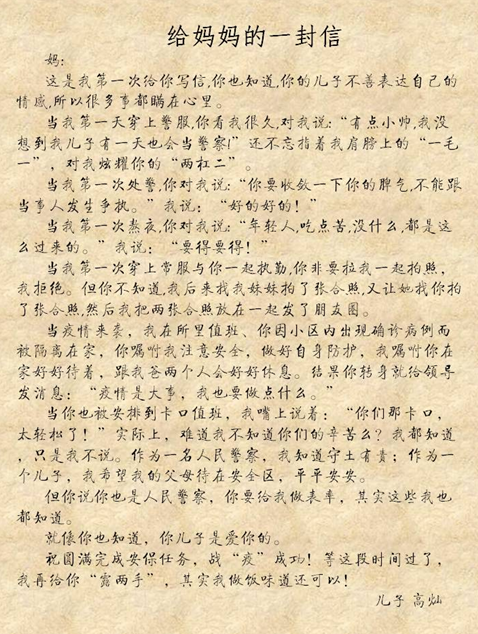 给妈妈的一封信
妈:
这是我第一次给你写信,你也知道,你的儿子不善表达自己的
情感,所以很多事都瞒在心里。
当我第一天穿上警服,你看我很久,对我说:“有点小帅,我没
想到我儿子有一天也会当警察!”还不忘指着我肩膀上的“一毛
一”，对我炫耀你的“两杠二”。
当我第一次处警,你对我说:“你要收敛一下你的脾气,不能跟
当事人发生争执。”我说：“好的好的！”
当我第一次熬夜,你对我说:“年轻人,吃点苦,没什么,都是这
么过来的。”我说：“要得要得！”
当我第一次穿上常服与你一起执勤,你非要拉我一起拍照，
我拒绝。但你不知道,我后来找我妹妹拍了张合照,又让她找你拍
了张合照,然后我把两张合照放在一起发了朋友圈。
当疫情来袭，我在所里值班、你因小区内出现确诊病例而
被隔离在家，你嘱咐我注意安全，做好自身防护，我嘱咐你在
家好好待着，跟我爸两个人会好好休息。结果你转身就给领导
发消息：“疫情是大事，我也要做点什么。”
当你也被安排到卡口值班，我嘴上说着：“你们那卡口，
太轻松了！”实际上，难道我不知道你们的辛苦么？我都知道
，只是我不说。作为一名人民警察，我知道守土有责；作为一
个儿子，我希望我的父母待在安全区，平平安安。
但你说你也是人民警察，你要给我做表率，其实这些我也
都知道。
就像你也知道，你儿子是爱你的。
祝圆满完成安保任务，战“疫”成功！等这段时间过了，
我再给你“露两手”，其实我做饭味道还可以！
儿子 高灿